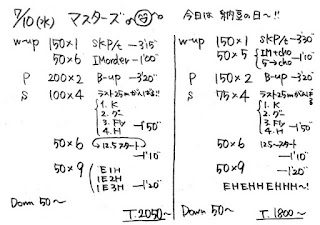 7/10(水) マスターズ
今日は納豆の日〜!!
w-up 150×1 SKP/t -3'15"
50×6 IMorder -1'00"
P 200×2 B-up -3'20"
S 100×4 ラスト25mがんばる!!
1. K
2. プニ
3. Fly
4. H -1'50"
50×6 12.5スタート
-1'10"
50×9 1E1H
1E2H
1E3H -1'20"
Down 50〜
T. 2050〜
w-up 150×1 SKP/t -3'30"
50×5 IM+cho
5→cho -1'10"
P 150×2 B-up -3'20"
S 75×4 ラスト25mがんばる
1. K
2. プニ
3. Fly
4. H -1'50"
50×6 12.5〜スタート
-1'10"
50×9 -1'20"
EHEHHEHHH〜!
Down 50〜
T. 1800〜